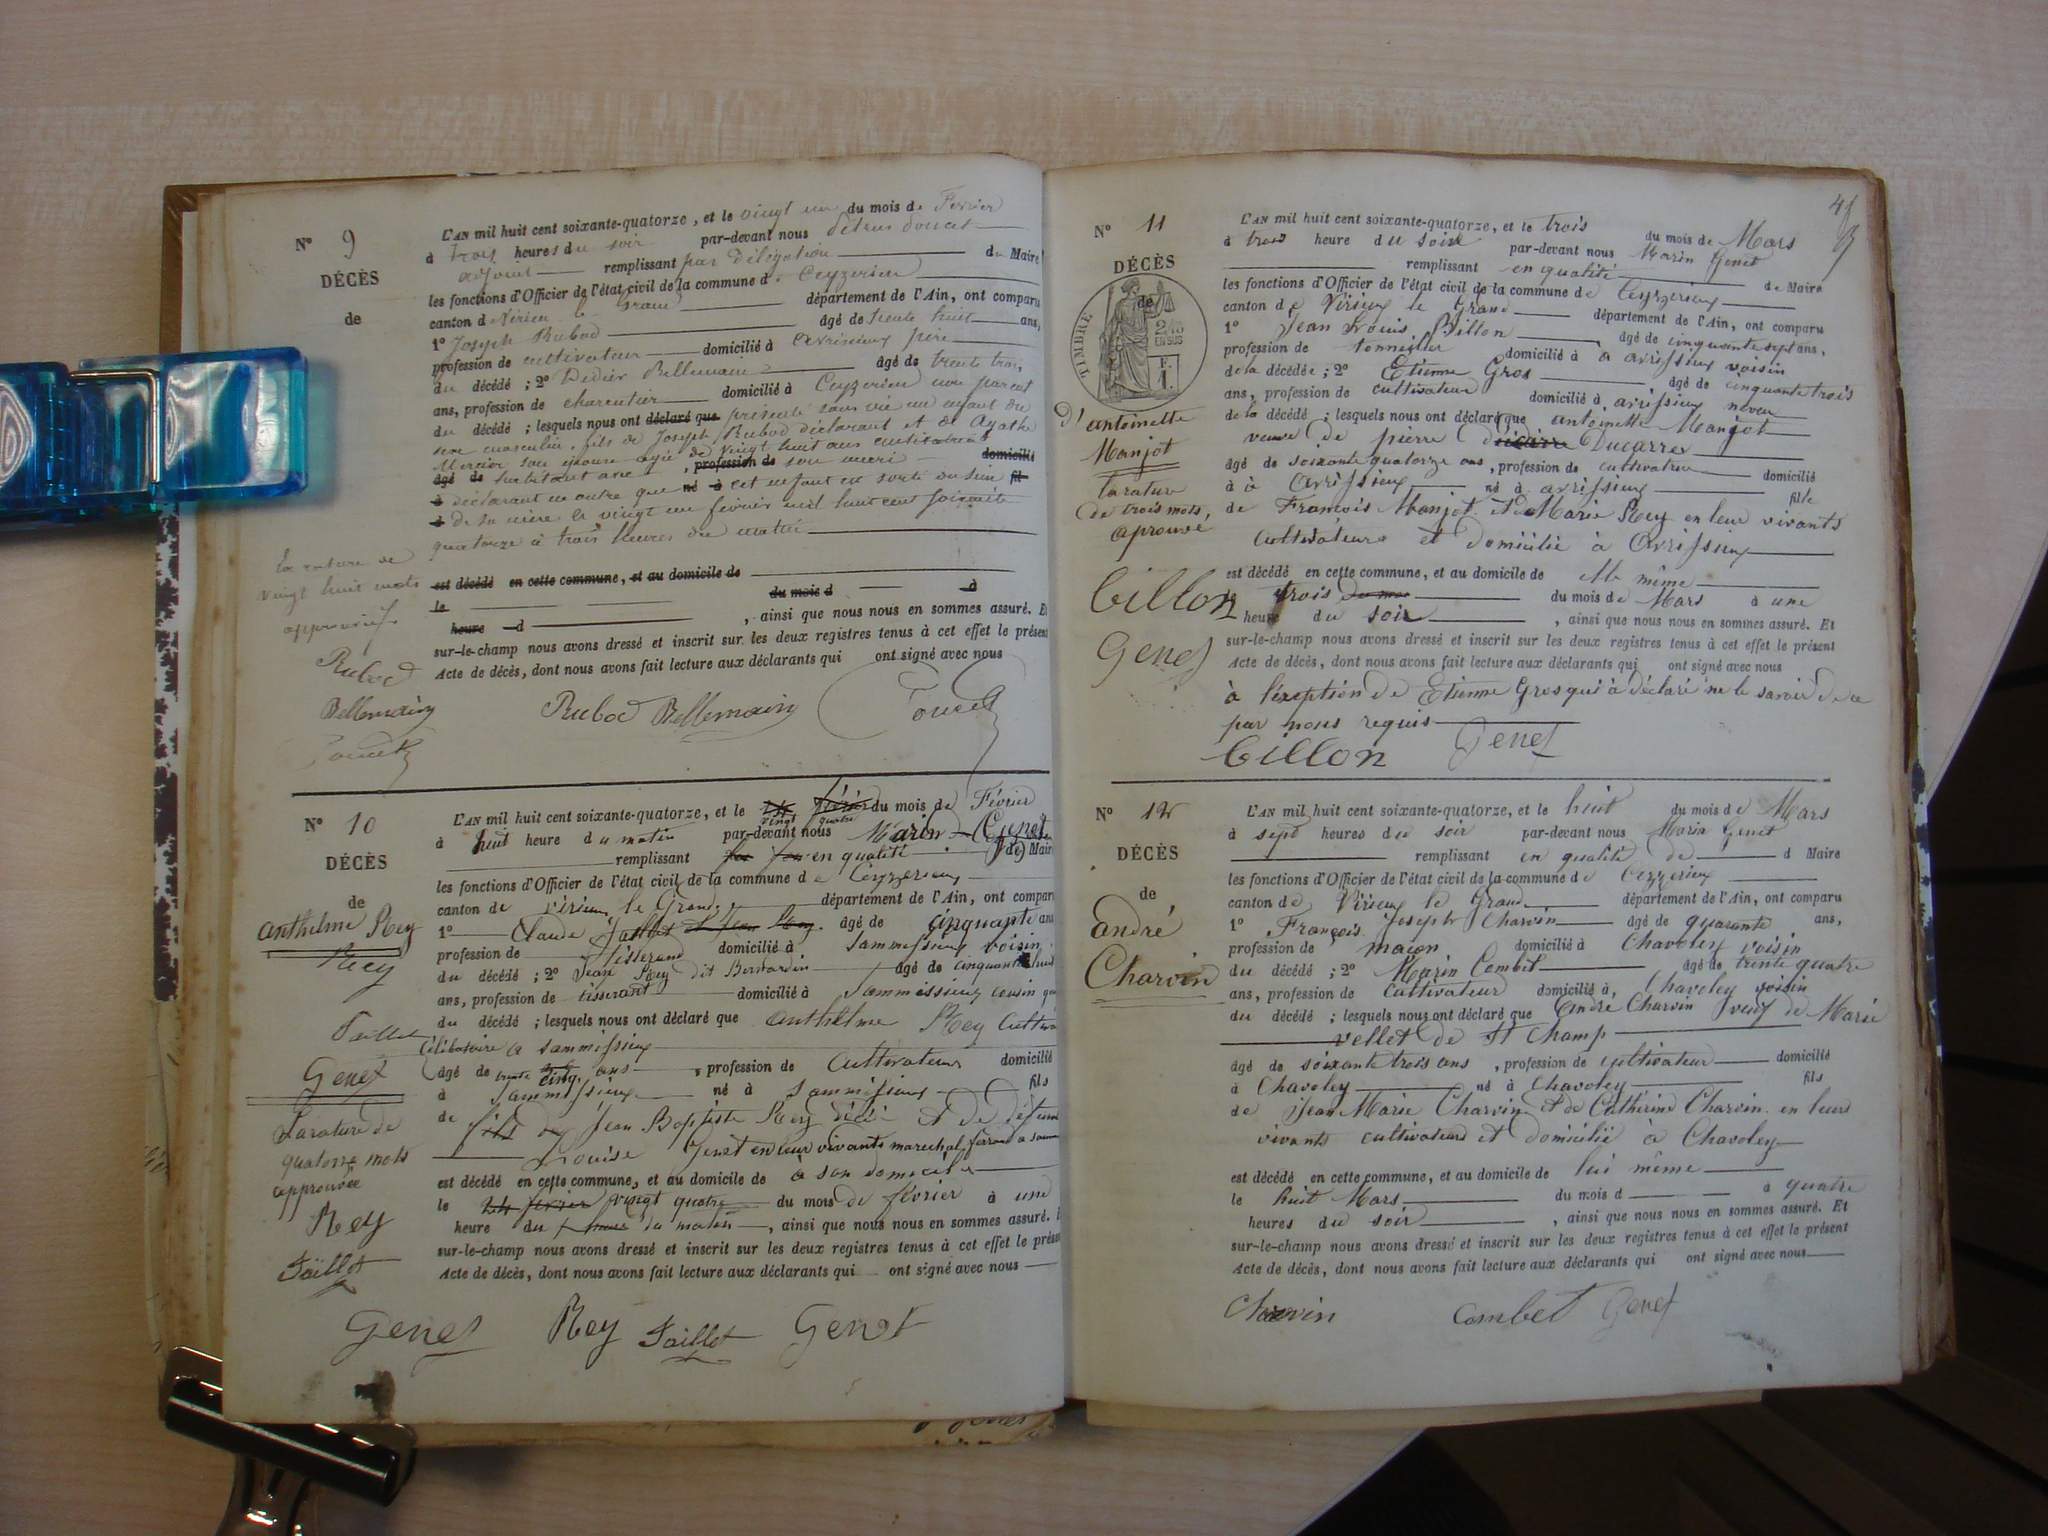 N° 9
DÉCÈS
de
L'AN mil huit cent soixante-quatorze, et le vingt un du mois de Fevrier
à trois heures du soir par-devant nous doucet
adjoint remplissant par délégation du Maire
les fonctions d'Officier de l'état civil de la commune de Ceyzerieu
canton d Virieu le Grand département de l'Ain, ont comparu
1° Joseph Rubod âgé de trente huit ans,
profession de cultivateur domicilié à avrissieux père
du décédé ; 2° Didier Bellemain âgé de trente trois
ans, profession de charcutier domicilié à Ceyzerieu non parent
du décédé ; lesquels nous ont déclaré que présenté sans vie un enfant du
sexe masculin, fils de Joseph Rubod déclarant et de Agathe
Mercier son épouse agée de vingt huit ans cultivatrice
âgé de habitant avec , profession de son mari domicilié
à déclarant en outre que né à cet enfant est sorti du sein fil
d de sa mère le vingt un février mil huit cent soixante
quatorze à trois heures du matin
la rature de
vingt huit mots
approuvés
est décédé en cette commune, et au domicile de
le du mois d à
heure d , ainsi que nous nous en sommes assuré. Et
sur-le-champ nous avons dressé et inscrit sur les deux registres tenus à cet effet le présent
Acte de décès, dont nous avons fait lecture aux déclarants qui ont signé avec nous
Rubod
Bellemain
Doucet
Rubod Bellemain Doucet
N° 10
DÉCÈS
de
anthelme Rey
Rey
Taillet
Genet
La rature de
quatorze mots
approuvée
Rey
Taillet
L'AN mil huit cent soixante-quatorze, et le vingt quatre du mois de Février
à huit heure du matin par-devant nous Marin Genet
remplissant en qualité de Maire
les fonctions d'Officier de l'état civil de la commune de Ceyzerieux
canton de Virieux le Grand département de l'Ain, ont comparu
1° Claude Taillet et Jean Rey âgé de cinquante ans
profession de Tisserand domicilié à Sammissieux voisin
du décédé ; 2° Jean Rey dit Bernardin âgé de cinquante huit
ans, profession de tisserant domicilié à Sammissieux cousin
du décédé ; lesquels nous ont déclaré que anthelme Rey
célibataire a sammissieux
âgé de trente cinq ans , profession de cultivateur domicilié
à Sammissieux né à Sammissieux fils
de fils de Jean Baptiste Rey et de
Louise Genet en leur vivants marechal ferrant a
est décédé en cette commune, et au domicile de à son domicile
le 24 fevrier vingt quatre du mois de février à une
heure du matin , ainsi que nous nous en sommes assuré.
sur-le-champ nous avons dressé et inscrit sur les deux registres tenus à cet effet le
Acte de décès, dont nous avons fait lecture aux déclarants qui ont signé avec nous
Genet Rey Taillet Genet
N° 11
DÉCÈS
de
TIMBRE
2/10
EN SUS
F.
1.
d'antoinette
Manjot
la rature
de trois mots,
aprouvé
Billon
Genet
L'AN mil huit cent soixante-quatorze, et le trois du mois de Mars
à trois heure du soir par-devant nous Marin Genet
remplissant en qualité de Maire
les fonctions d'Officier de l'état civil de la commune de Ceyzerieux
canton de Virieux le Grand département de l'Ain, ont comparu
1° Jean Louis Billon âgé de cinquante sept ans,
profession de tonnelier domicilié à a avrissieux voisin
de la décédée ; 2° Etienne Gros âgé de cinquante trois
ans, profession de cultivateur domicilié à avrissieux neveu
de la décédé ; lesquels nous ont déclaré que antoinette Manjot
veuve de pierre Ducarre
âgé de soixante quatorze ans , profession de cultivateur domicilié
à à avrissieux né à avrissieux fille
de Francois Manjot et de Marie Rey en leur vivants
cultivateurs et domicilié à avrissieux
est décédé en cette commune, et au domicile de elle même
le trois du mois de Mars à une
heure du soir , ainsi que nous nous en sommes assuré. Et
sur-le-champ nous avons dressé et inscrit sur les deux registres tenus à cet effet le présent
Acte de décès, dont nous avons fait lecture aux déclarants qui ont signé avec nous
à l'exeption de Etienne Gros qui à déclaré ne le savoir de ce
par nous requis
Billon Genet
N° 12
DÉCÈS
de
andré
Charvin
L'AN mil huit cent soixante-quatorze, et le huit du mois de Mars
à sept heures du soir par-devant nous Marin Genet
remplissant en qualité de d Maire
les fonctions d'Officier de l'état civil de la commune de Cezzerieux
canton de Virieux le Grand département de l'Ain, ont comparu
1° François Joseph Charvin âgé de quarante ans,
profession de maçon domicilié à Chavoley voisin
du décédé ; 2° Marin Combet âgé de trente quatre
ans, profession de cultivateur domicilié à Chavoley voisin
du décédé ; lesquels nous ont déclaré que André Charvin veuf de Marie
vellet de St Champ
âgé de soixante trois ans , profession de cultivateur domicilié
à Chavoley né à Chavoley fils
de Jean Marie Charvin et de Catherine Charvin en leur
vivants cultivateurs et domicilié à Chavoley
est décédé en cette commune, et au domicile de lui même
le huit Mars du mois d à quatre
heures du soir , ainsi que nous nous en sommes assuré. Et
sur-le-champ nous avons dressé et inscrit sur les deux registres tenus à cet effet le présent
Acte de décès, dont nous avons fait lecture aux déclarants qui ont signé avec nous
Charvin Combet Genet